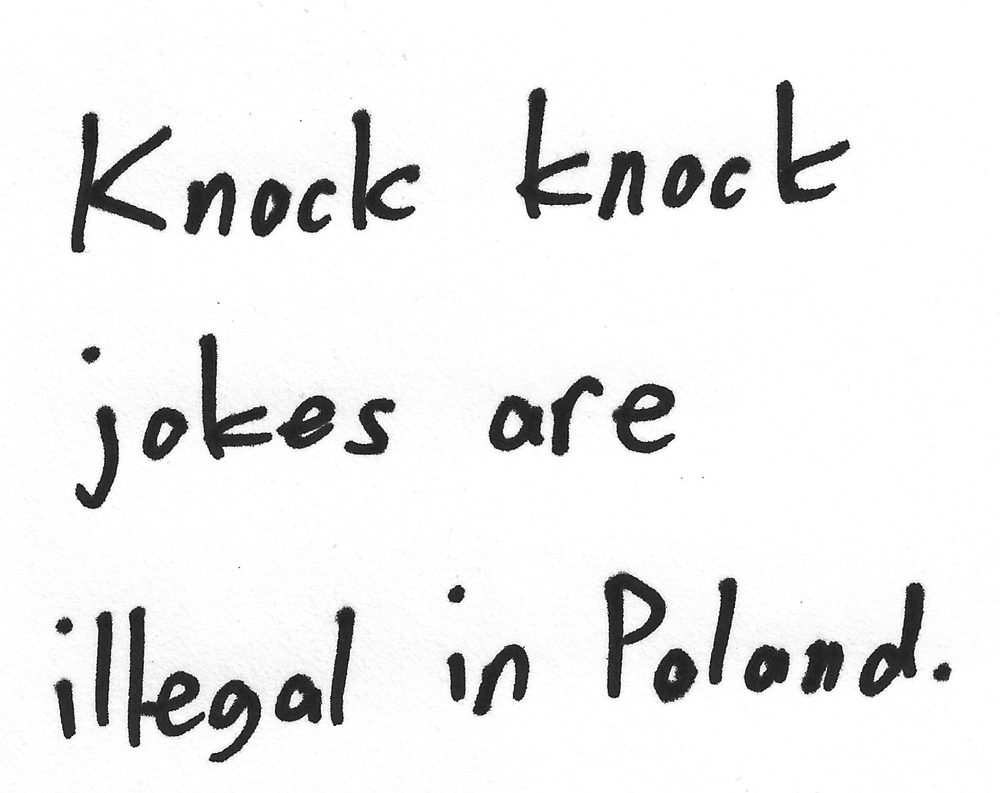 Knock knock
jokes are
illegal in Poland.